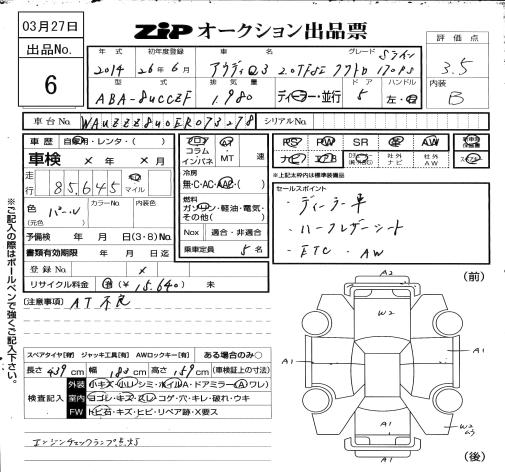 03月27日
ZIP オークション出品票
出品No.
6
年式 初年度登録 車名 グレード
2014 26年6月 アウディQ3 2.0TFSI クワトロ 170PS Sライン
型式 排気量 ドア ハンドル
ABA-8UCCZF 1,980 ディーラー・並行 5 左・右
評価点
3.5
内装
B
車台No. WAUZZZ8U0ER073278 シリアルNo.
車歴 自家用・レンタ・( )
車検 × 年 × 月
走行 85,645 km マイル
色 パール
(元色)
カラーNo. 内装色
予備検 年 月 日(3・8)No.
書類有効期限 年 月 日迄
登録No. ×
リサイクル料金 済(¥15,640) 未
フロア コラム インパネ
AT MT 速
冷房
無・C・AC・AAC・( )
燃料
ガソリン・軽油・電気・その他( )
Nox 適合・非適合
乗車定員 5名
PS PW SR 革 AW
ナビ 社外ナビ 社外AW
※上記太枠内は標準装備品
セールスポイント
・ディーラー車
・ハーフレザーシート
・ETC ・AW
[注意事項] AT不良
スペアタイヤ[有] ジャッキ工具[有] AWロックキー[有] ある場合のみ○
長さ 439cm 幅 183cm 高さ 159cm (車検証上の寸法)
検査記入
外装 小キズ・小凹・シミ・ホイルA・ドアミラー(A)ワレ)
室内 ヨゴレ・キズ・スレ・コゲ・穴・キレ・破れ・ウキ
FW トビ石・キズ・ヒビ・リペア跡・X要ス
エンジンチェックランプ点灯
※ご記入の際はボールペンで強くご記入下さい。
(前)
A2
W2
A1
A1
A1
W2
(後)